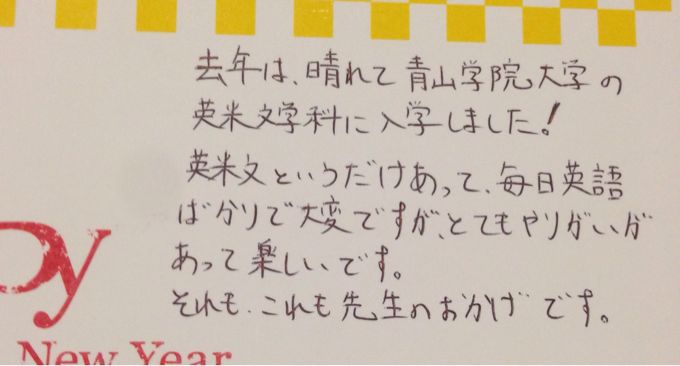 去年は、晴れて青山学院大学の
英米文学科に入学しました!
英米文というだけあって、毎日英語
ばかりで大変ですが、とてもやりがいが
あって楽しいです。
それも、これも先生のおかげです。
py
New Year